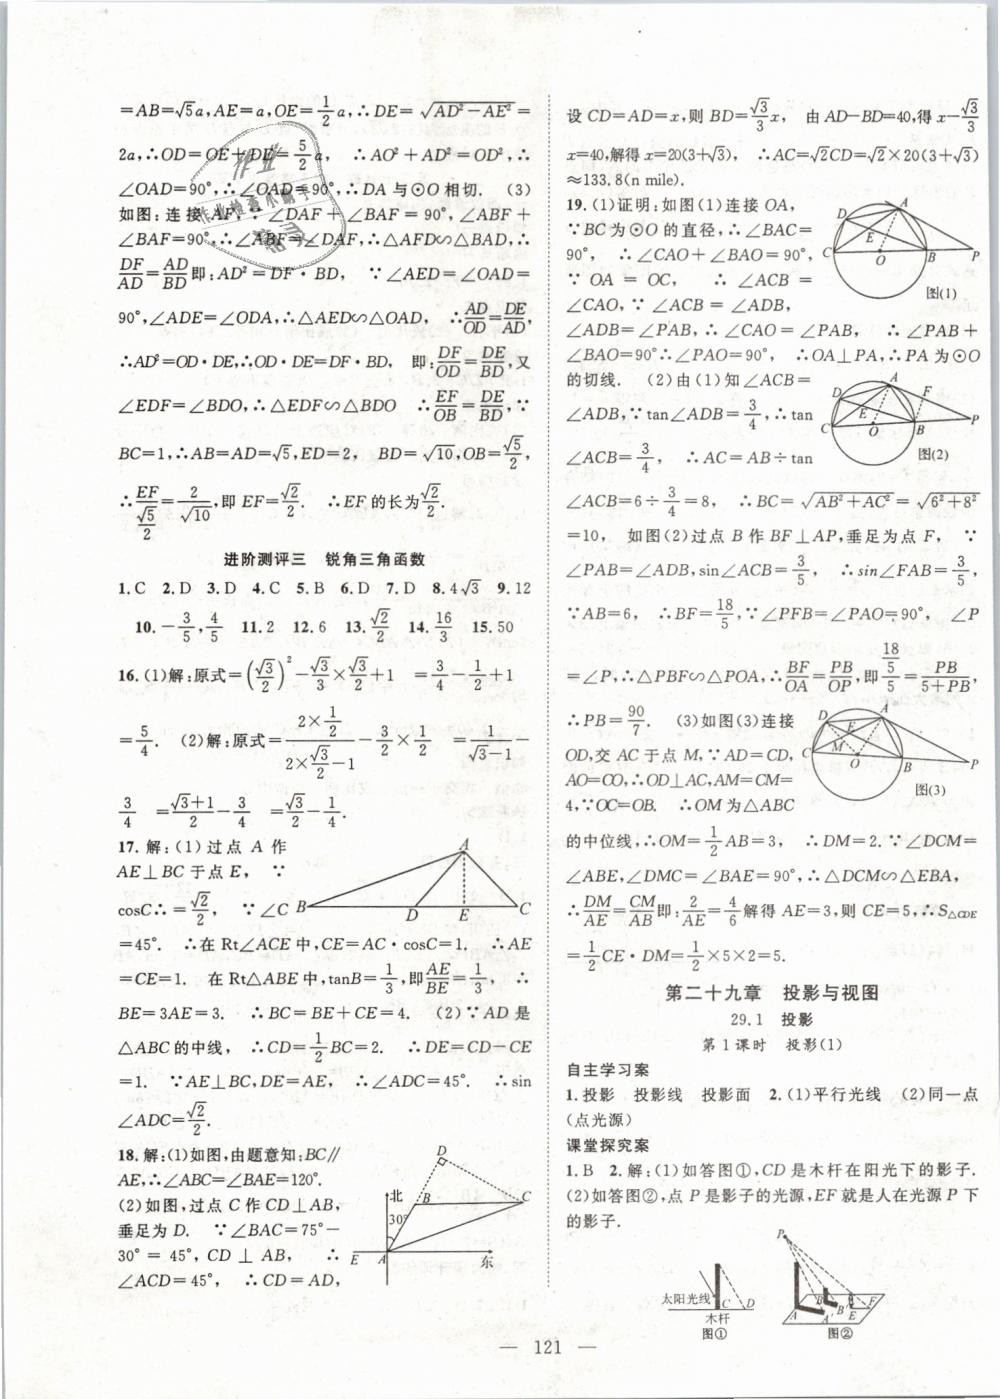 =AB=√5a,AE=a,OE=1/2a,∴DE=√(AD²-AE²)=
2a,∴OD=OE+DE=5/2a, ∴AO²+AD²=OD²,∴
∠OAD=90°,∴∠OAD=90°,∴DA与⊙O相切. (3)
如图:连接AF,∵∠DAF+∠BAF=90°,∠ABF+
∠BAF=90°,∴∠ABF=∠DAF,∴△AFD∽△BAD,∴
DF/AD=AD/BD即:AD²=DF·BD, ∵∠AED=∠OAD=
90°,∠ADE=∠ODA,∴△AED∽△OAD, ∴AD/OD=DE/AD,
∴AD²=OD·DE,∴OD·DE=DF·BD, 即:DF/OD=DE/BD,又
∠EDF=∠BDO,∴△EDF∽△BDO ∴EF/OB=DE/BD,∵
BC=1,∴AB=AD=√5,ED=2, BD=√10,OB=√5/2,
∴EF/(√5/2)=2/√10,即EF=√2/2. ∴EF的长为√2/2.
进阶测评三 锐角三角函数
1.C 2.D 3.D 4.C 5.B 6.D 7.D 8.4√3 9.12
10.-3/5,4/5 11.2 12.6 13.√2/2 14.16/3 15.50
16.(1)解:原式=(√3/2)²-√3/3×√3/2+1 =3/4-1/2+1
=5/4. (2)解:原式=(2×1/2)/(2×√3/2-1)-3/2×1/2 =1/(√3-1)-
3/4 =(√3+1)/2-3/4=√3/2-1/4.
17.解:(1)过点A作
AE⊥BC于点E, ∵
cosC∴=√2/2, ∵∠C
=45°. ∴在Rt∠ACE中,CE=AC·cosC=1. ∴AE
=CE=1. 在Rt△ABE中,tanB=1/3,即AE/BE=1/3, ∴
BE=3AE=3. ∴BC=BE+CE=4. (2)∵AD是
△ABC的中线, ∴CD=1/2BC=2. ∴DE=CD-CE
=1. ∵AE⊥BC,DE=AE, ∴∠ADC=45°. ∴sin
∠ADC=√2/2.
A
B
D
E
C
18.解:(1)如图,由题意知:BC∥
AE,∴∠ABC=∠BAE=120°.
(2)如图,过点C作CD⊥AB,
垂足为D. ∵∠BAC=75°-
30°=45°,CD⊥AB, ∴
∠ACD=45°, ∴CD=AD,
D
北
B
C
30°
E
A
东
设CD=AD=x,则BD=√3/3x, 由AD-BD=40,得x-√3/3
x=40,解得x=20(3+√3), ∴AC=√2CD=√2×20(3+√3)
≈133.8(n mile).
19.(1)证明:如图(1)连接OA,
∵BC为⊙O的直径,∴∠BAC=
90°, ∴∠CAO+∠BAO=90°,
∵OA=OC, ∴∠ACB=
∠CAO,∵∠ACB=∠ADB,
∠ADB=∠PAB,∴∠CAO=∠PAB, ∴∠PAB+
∠BAO=90°∴∠PAO=90°, ∴OA⊥PA,∴PA为⊙O
的切线. (2)由(1)知∠ACB=
∠ADB,∵tan∠ADB=3/4,∴tan
∠ACB=3/4, ∴AC=AB÷tan
∠ACB=6÷3/4=8, ∴BC=√(AB²+AC²)=√(6²+8²)
=10, 如图(2)过点B作BF⊥AP,垂足为点F, ∵
∠PAB=∠ADB,sin∠ACB=3/5, ∴sin∠FAB=3/5,
∵AB=6, ∴BF=18/5,∵∠PFB=∠PAO=90°, ∠P
=∠P,∴△PBF∽△POA,∴BF/OA=PB/OP,即(18/5)/5=PB/(5+PB),
∴PB=90/7. (3)如图(3)连接
OD,交AC于点M,∵AD=CD,
AO=CO,∴OD⊥AC,AM=CM=
4,∵OC=OB. ∴OM为△ABC
的中位线,∴OM=1/2AB=3, ∴DM=2.∵∠DCM=
∠ABE,∠DMC=∠BAE=90°,∴△DCM∽△EBA,
∴DM/AE=CM/AB即:2/AE=4/6解得AE=3,则CE=5,∴S△CDE
=1/2CE·DM=1/2×5×2=5.
图(1)
图(2)
图(3)
第二十九章 投影与视图
29.1 投影
第1课时 投影(1)
自主学习案
1.投影 投影线 投影面 2.(1)平行光线 (2)同一点
(点光源)
课堂探究案
1.B 2.解:(1)如答图①,CD是木杆在阳光下的影子.
(2)如答图②,点P是影子的光源,EF就是人在光源P下
的影子.
太阳光线
C
D
木杆
图①
P
图②
— 121 —